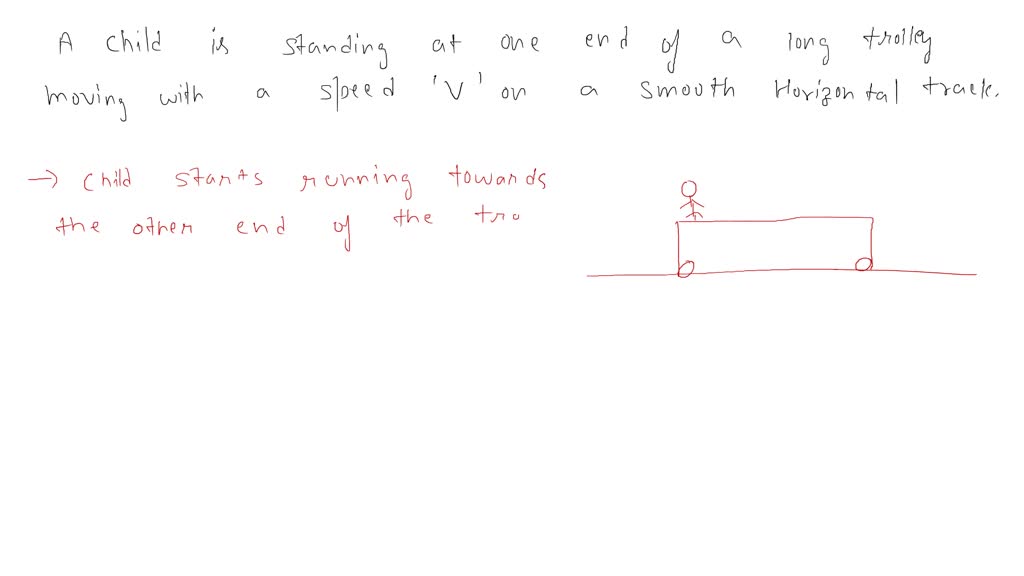 A child is standing at one end of a long trolley
moving with a speed 'V' on a smooth Horizontal track.
→ Child starts running towards
the other end of the tro